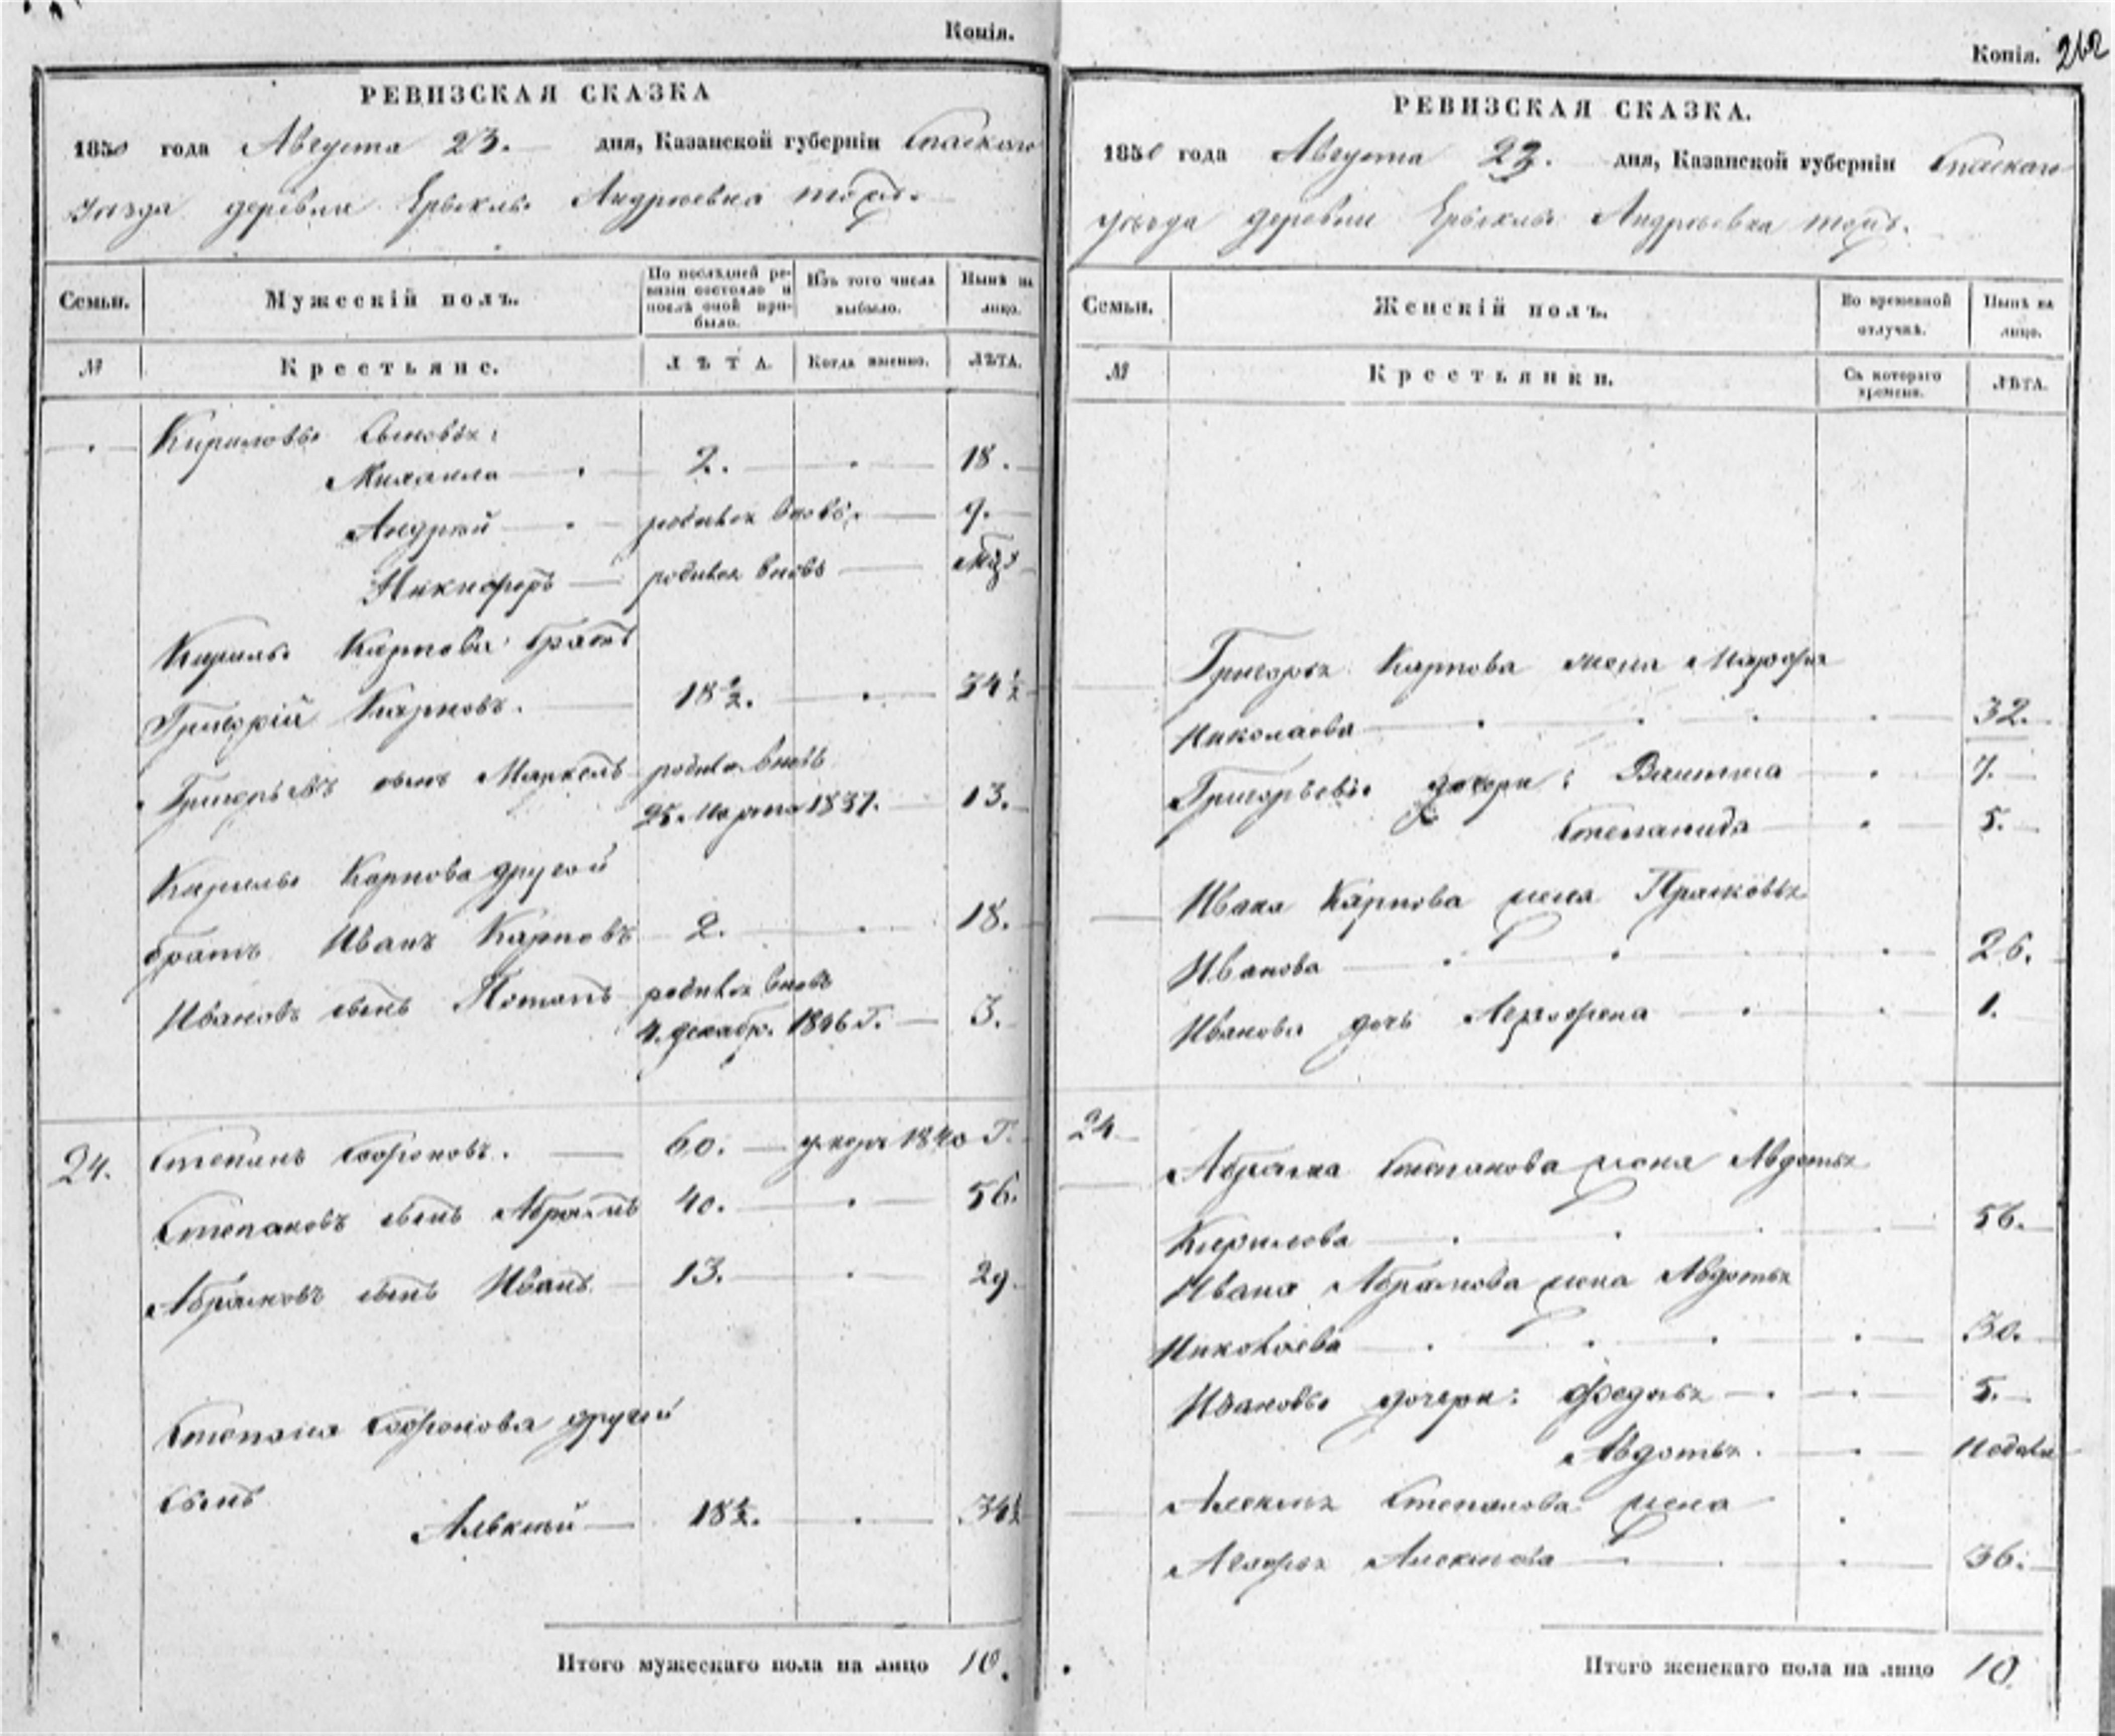 Копія.
РЕВИЗСКАЯ СКАЗКА
1850 года Августа 23. дня, Казанской губерніи Спаскаго
уѣзда деревни Ерыклы Андреевка тожъ.
Семьи. Мужескій полъ. По послѣдней ревизіи состояло и послѣ оной прибыло. Изъ того числа выбыло. Нынѣ на лицо.
№ Крестьяне. ЛѢТА. Когда именно. ЛѢТА.
Кириловы сыновья:
Михаила 2. 18.
Андрей родился вновь. 9.
Никифоръ родился вновь
Кирилы Карпова братъ
Григорій Карповъ. 18½. 34½
Григорьевъ сынъ Маркелъ родился вновь
25. Марта 1837. 13.
Кирилы Карпова другой
братъ Иванъ Карповъ 2. 18.
Ивановъ сынъ Потапъ родился вновь
4. декабр. 1846 Г. 3.
24. Степанъ Софроновъ. 60. умеръ 1840 Г.
Степановъ сынъ Абрамъ 40. 56.
Абрамовъ сынъ Иванъ 13. 29
Степана Софронова другой
сынъ
Алексѣй 18½. 34½
Итого мужескаго пола на лицо 10.
Копія. 262
РЕВИЗСКАЯ СКАЗКА.
1850 года Августа 23. дня, Казанской губерніи Спаскаго
уѣзда деревни Ерыклы Андреевка тожъ.
Семьи. Женскій полъ. Во временной отлучкѣ. Нынѣ на лицо.
№ Крестьянки. Съ котораго времени. ЛѢТА.
Григорья Карпова жена Марфа
Николаева 32.
Григорьевы дочери: 7.
Степанида 5.
Ивана Карпова жена Прасковья
Иванова 26.
Иванова дочь Аграфена 1.
24 Абрама Степанова жена Авдотья
Кирилова 56.
Ивана Абрамова жена Авдотья
Николаева 30.
Ивановы дочери: Федосья 5.
Авдотья. недели
Алексѣя Степанова жена
Агафья Алексѣева 36.
Итого женскаго пола на лицо 10